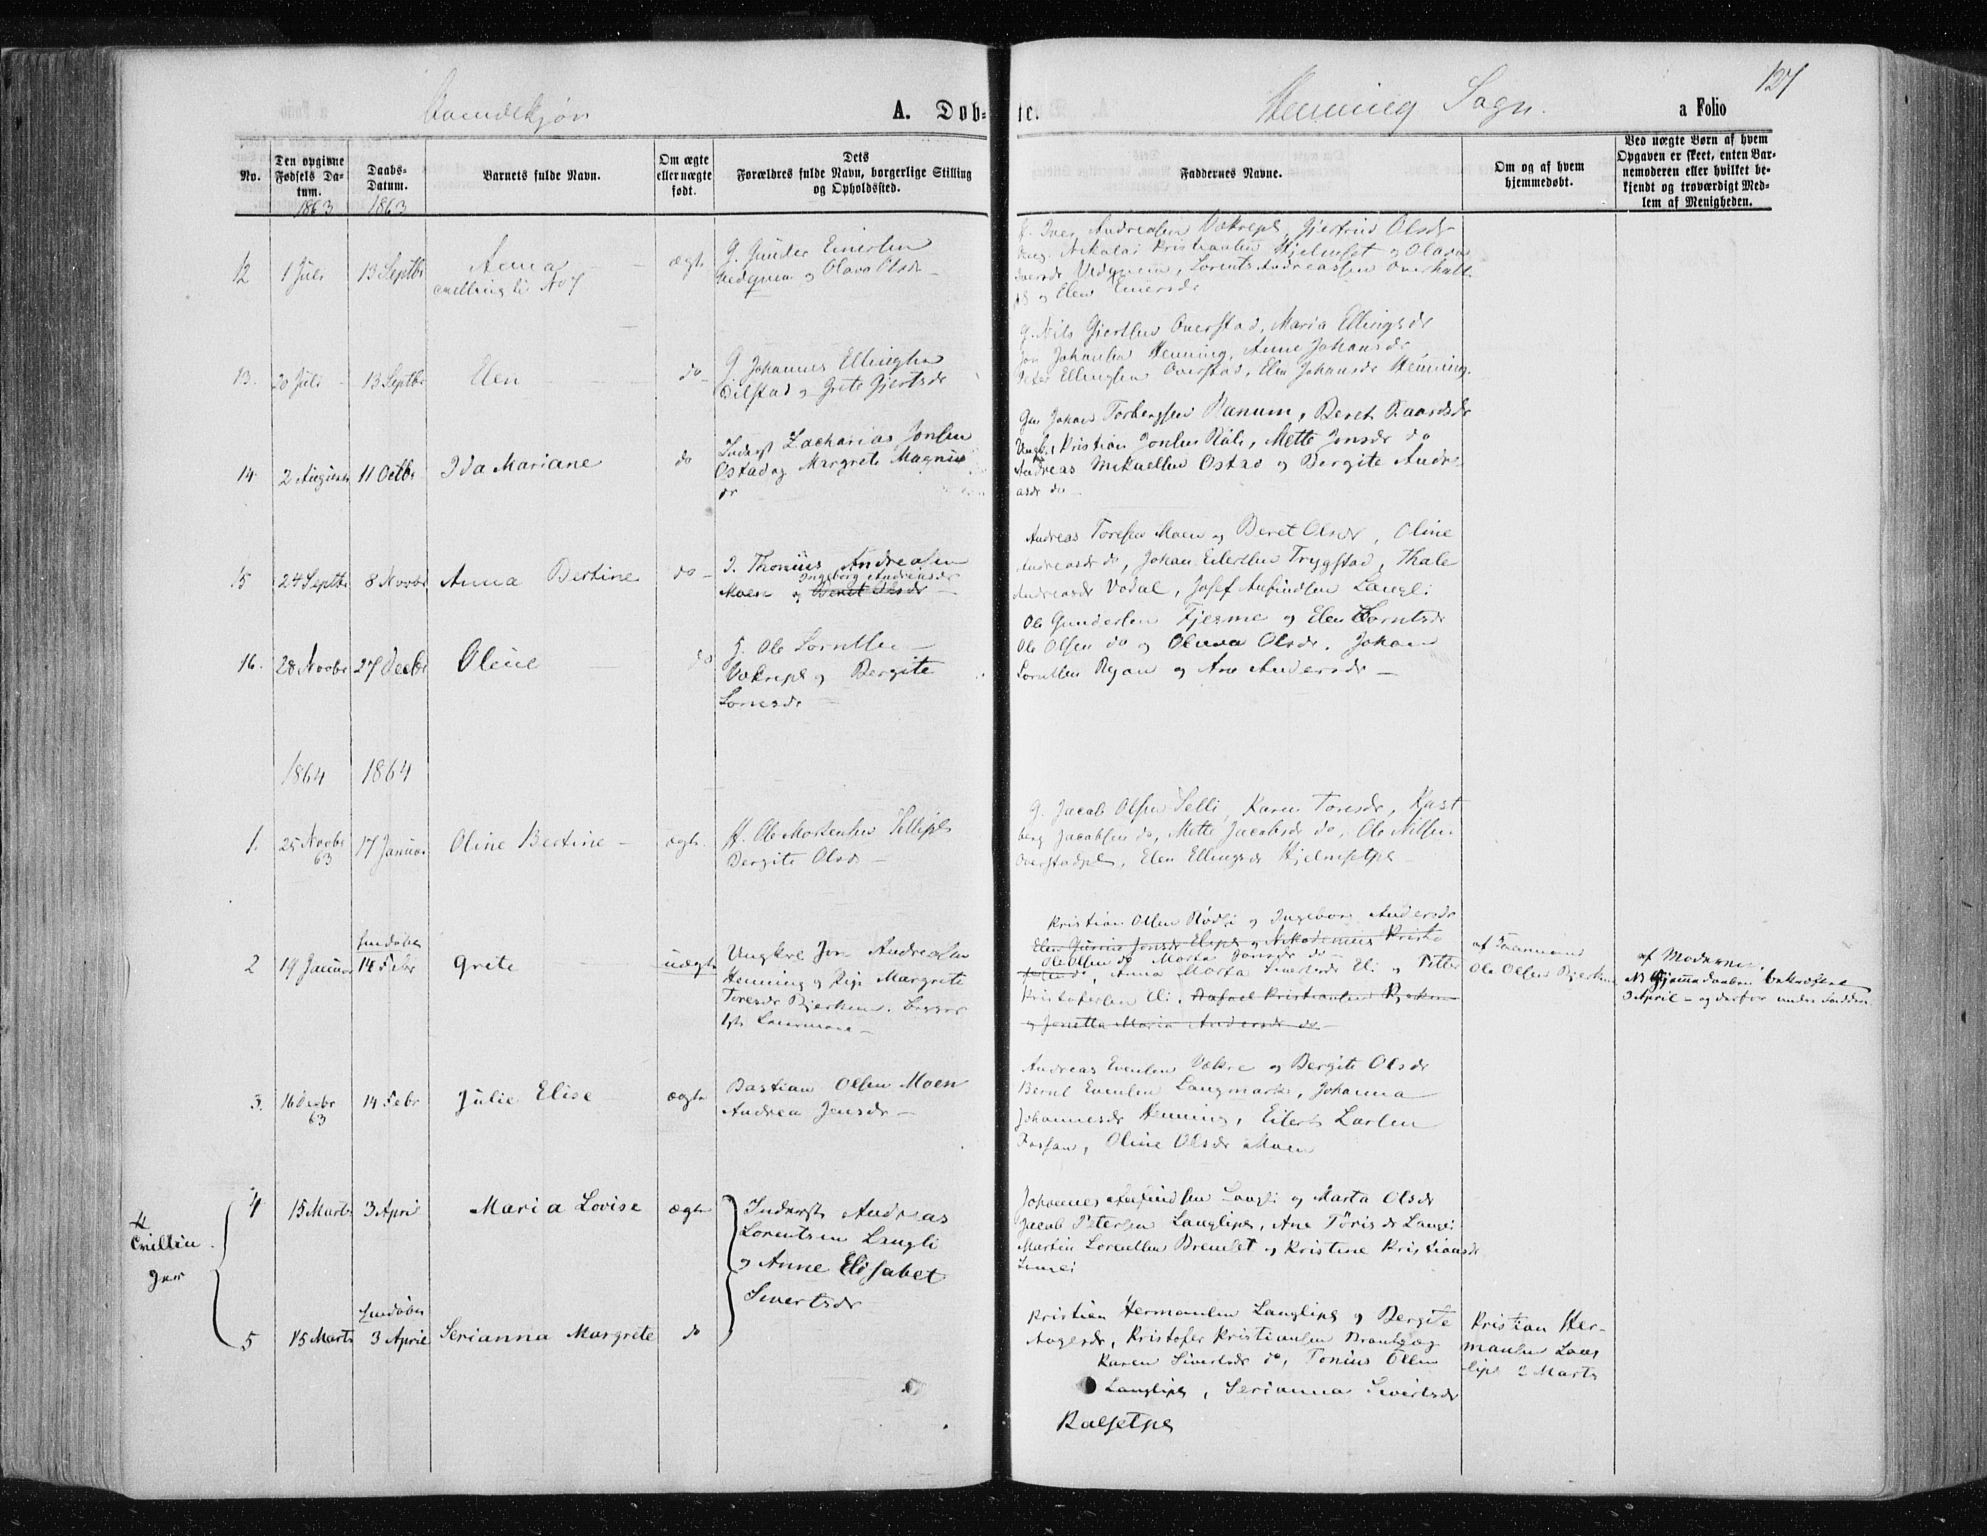 127
Qvindekjøn
A. Døb-
te.
Henning Sogn.
a Folio
No.
Den opgivne Fødsels Da-tum.
1863
Daabs-Datum.
1863
Barnets fulde Navn.
Om ægte eller uægte født.
Dets Forældres fulde Navn, borgerlige Stilling og Opholdssted.
Faddernes Navne.
Om og af hvem hjemmedøbt.
Ved uægte Børn af hvem Opgaven er skeet, enten Bar-nemoderen eller hvilket be-kjendt og troværdigt Med-lem af Menigheden.
12
1 Juli
13 Septbr
Anna
ægte
G. Gunder Einersen
og Olava Olsdr
G. Iver Andreassen Vækrepl, Gjertrud Olsdr
Ung. Nikolai Kristiansen Hjelmset og Olava
Iversdr, Lorents Andreassen Overhall
og Elen Einersdr
13.
20 Juli
13 Septbr
Elen
do
G. Johannes Ellingsen
Oilstad og Grete Gjertsdr
G. Nils Gjertsen Overstad, Maria Ellingsdr
Jon Johansen Henning, Anne Johansdr
Peter Ellingsen Overstad, Elen Johansdr Henning.
14
2 August
11 Octbr
Ida Mariane
do
Inderst Zacharias Jonsen
Østad og Margrete Magnus
dr
Gm Johan Torbergsen Hanum, Beret Baardsdr
Ungk. Kristian Jonsen, Mette Jonsdr do
Andreas Mikaelsen Østad og Bergite Andre-
asdr do
15
24 Septbr
8 Novbr
Anna Bertine
do
I. Thonius Andreasen
Ingeborg Andreasdr
Moen og Beret Olsdr
Andreas Toresen Moen og Beret Olsdr, Oline
Andreasdr do, Johan Eilertsen Trygstad, Thale
Andreasdr Vodal, Josef Anfindsen Langli
16.
28 Novbr
27 Decbr
Oline
do
G. Ole Lorntsen
Vækrepl og Bergite
Lornsdr
Ole Gundersen Fjesme og Elen Lorntsdr
Ole Olsen do og Oluva Olsdr, Johan
Lorntsen Ryan og Ane Andersdr
1864
1864
1.
25 Novbr
63
17 Januar
Oline Bertine
ægte
H. Ole Mortensen Sellipl
Bergite Olsdr
G. Jacob Olsen Selli, Karen Toresdr, Kast
berg Jacobsen do, Mette Jacobsdr do, Ole Nilsen
Overstadpl, Elen Ellingsdr Hjelmsetpl
2
19 Januar
hmdøbt
14 Febr
Grete
uægte
Ungkre Jon Andreasen
Henning og Pige Margrete
Toresdr Bjerken. Begges
1ste Leiermaal
Kristian Olsen og Ingeborg Andersdr
Elen Jonsdr Elipl og Nikodemus Kristo
Ole Olsen do Marta Jonsdr do
fersen do, Anna Marta Sivertsdr Eli og Petter
Kristofersen Eli, Rafael Kristiansen Bjerken
og Jonetta Maria Andersdr do
af
Ole Olsen Bjerken
af Moderen.
NB Hjemmedaaben bekræftet
3 April og derfor under
3.
16 Decbr
63
14 Febr
Julie Elise
ægte
Bastian Olsen Moen
Andrea Jensdr
Andreas Evensen Vækre og Bergite Olsdr
Bernt Evensen Langmark, Johanna
Johannesdr Henning, Eilert Larsen
Fossan, Oline Olsdr Moen
Tvillin
ger
4
15 Marts
3 April
Maria Lovise
ægte
Inderst Andreas
Lorentsen Langli
og Anne Elisabet
Sivertsdr
Johannes Anfindsen Langli og Marta Olsdr
Jacob Petersen Langlipl, Ane Törisdr Langli
Martin Lorentsen Bremset og Kristine Kristiansdr
Langli
5
15 Marts
hmdøbt
3 April
Serianna Margrete
do
Kristian Hermansen Langlipl og Bergite
Aagesdr, Kristofer Kristiansen Brandhaug
Karen Sivertsdr do, Tonius Olsen
Langlipl, Serianna Sivertsdr
Kalsetpl
Kristian Her-
mansen Lang
lipl 2 Marts